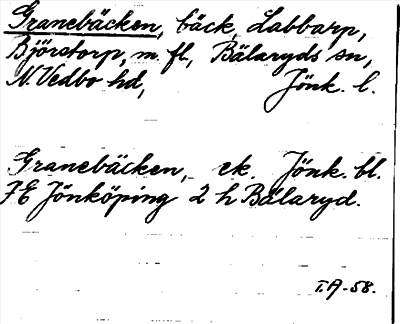 Granebäcken, bäck, Labbarp,
Björstorp, m. fl., Bälaryds sn,
N. Vedbo hd, Jönk. l.
Granebäcken, ek. Jönk. bl.
7E Jönköping 2 h Bälaryd.
I.A-58.